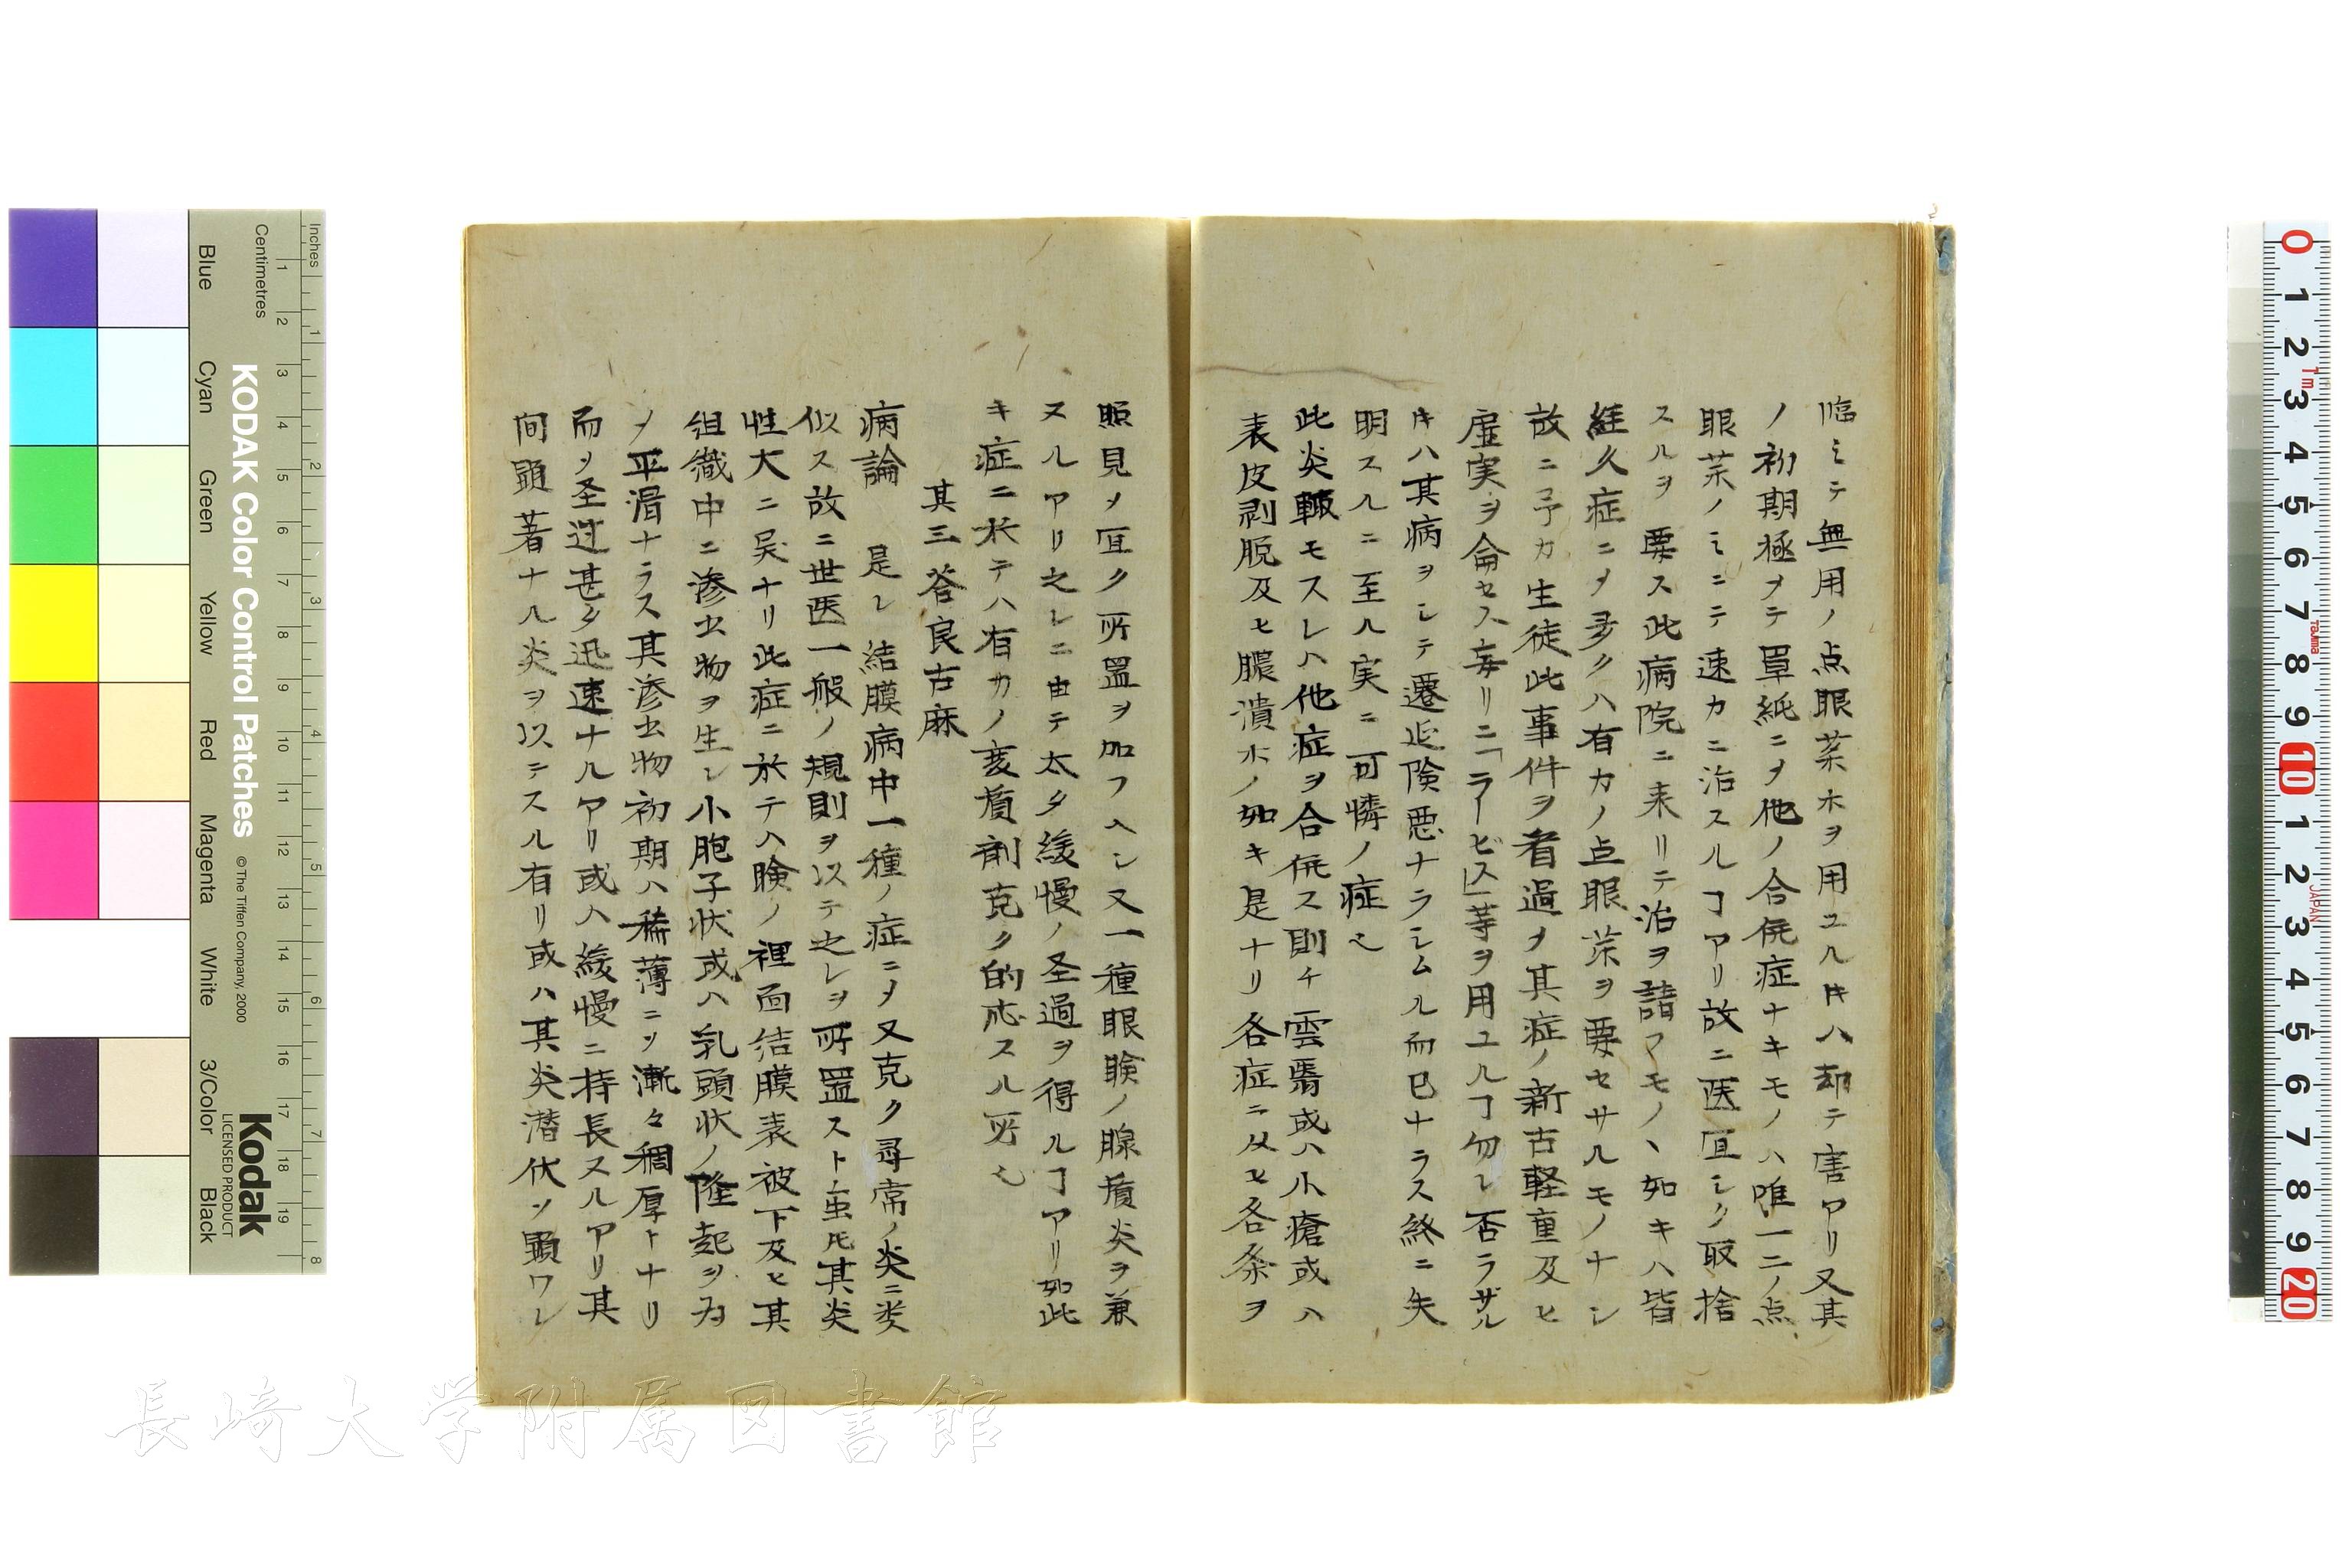 臨ミテ無用ノ点眼薬ホヲ用ユル𪜈ハ却テ害アリ又其
ノ初期極メテ単純ニメ他ノ合併症ナキモノハ唯一二ノ点
眼薬ノミニテ速カニ治スルヿアリ故ニ医宜シク取捨
スルヲ要ス此病院ニ来リテ治ヲ請フモノヽ如キハ皆
経久症ニメ多クハ有力ノ点眼薬ヲ要セサルモノナシ
故ニ予カ生徒此事件ヲ看過メ其症ノ新古軽重及ヒ
虚実ヲ侖セス毎リニ「ラーピス」等ヲ用ユルヿ勿レ否ラザル
𪜈ハ其病ヲシテ遷延険悪ナラシムル而已ナラス終ニ失
明スルニ至ル実ニ可憐ノ症也
此炎輙モスレハ他症ヲ合併ス則チ雲翳或ハ小瘡或ハ
表皮剥脱及ヒ膿潰ホノ如キ是ナリ各症ニ及ヒ各条ヲ
照見メ宜ク所置ヲ加フヘシ又一種眼瞼ノ腺質炎ヲ兼
ヌルアリ之レニ由テ太タ緩慢ノ圣過ヲ得ルヿアリ如此
キ症ニ於テハ有力ノ変質剤克ク的応スル所也
其三答良古麻
病論 是レ結膜病中一種ノ症ニメ又克ク尋常ノ炎ニ类
似ス故ニ世医一般ノ規則ヲ以テ之レヲ所置スト虽𪜈其炎
性大ニ异ナリ此症ニ於テハ瞼ノ裡面結膜表被下及ヒ其
組織中ニ滲出物ヲ生シ小胞子状或ハ乳頭状ノ隆起ヲ為
メ平滑ナラス其滲出物初期ハ稀薄ニソ漸々稠厚トナリ
而ソ圣过甚タ迅速ナルアリ或ハ緩慢ニ持長スルアリ其
間顕著ナル炎ヲ以テスル有リ或ハ其炎潜伏ソ顕ワレ
KODAK Color Control Patches
© The Tiffen Company, 2000
Kodak
LICENSED PRODUCT
Inches
Centimetres
Blue
Cyan
Green
Yellow
Red
Magenta
White
3/Color
Black
1 2 3 4 5 6 7 8 9 10 11 12 13 14 15 16 17 18 19
1 2 3 4 5 6 7 8
0 1 2 3 4 5 6 7 8 9 10 1 2 3 4 5 6 7 8 9 20
1m
TAJIMA
JAPAN
長崎大学附属図書館